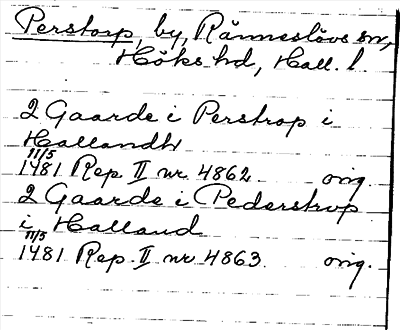 Perstorp, by, Ränneslövs sn,
Höks hd, Hall. l.
2 Gaarde i Perstrop i
Hallandh
11/5
1481 Rep. II nr 4862. orig.
2 Gaarde i Pederstrup
i Halland
11/5
1481 Rep. II nr 4863. orig.